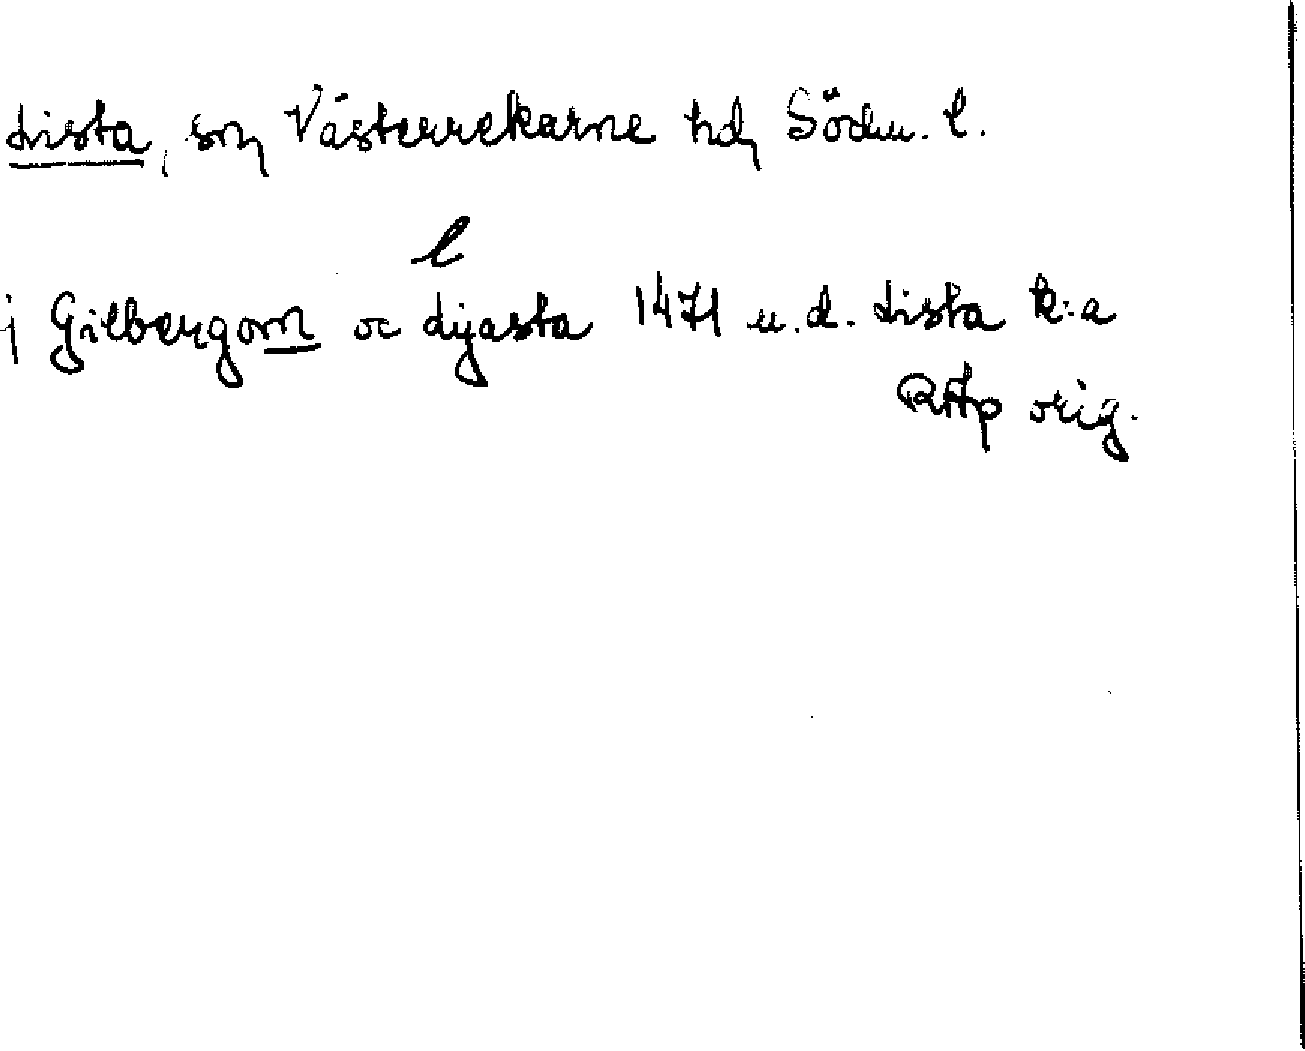 Lista, sn, Västerrekarne hd, Södm. l.
l
j Gilbergom oc lijasta 1471 u.d. Lista k:a
RAp orig.